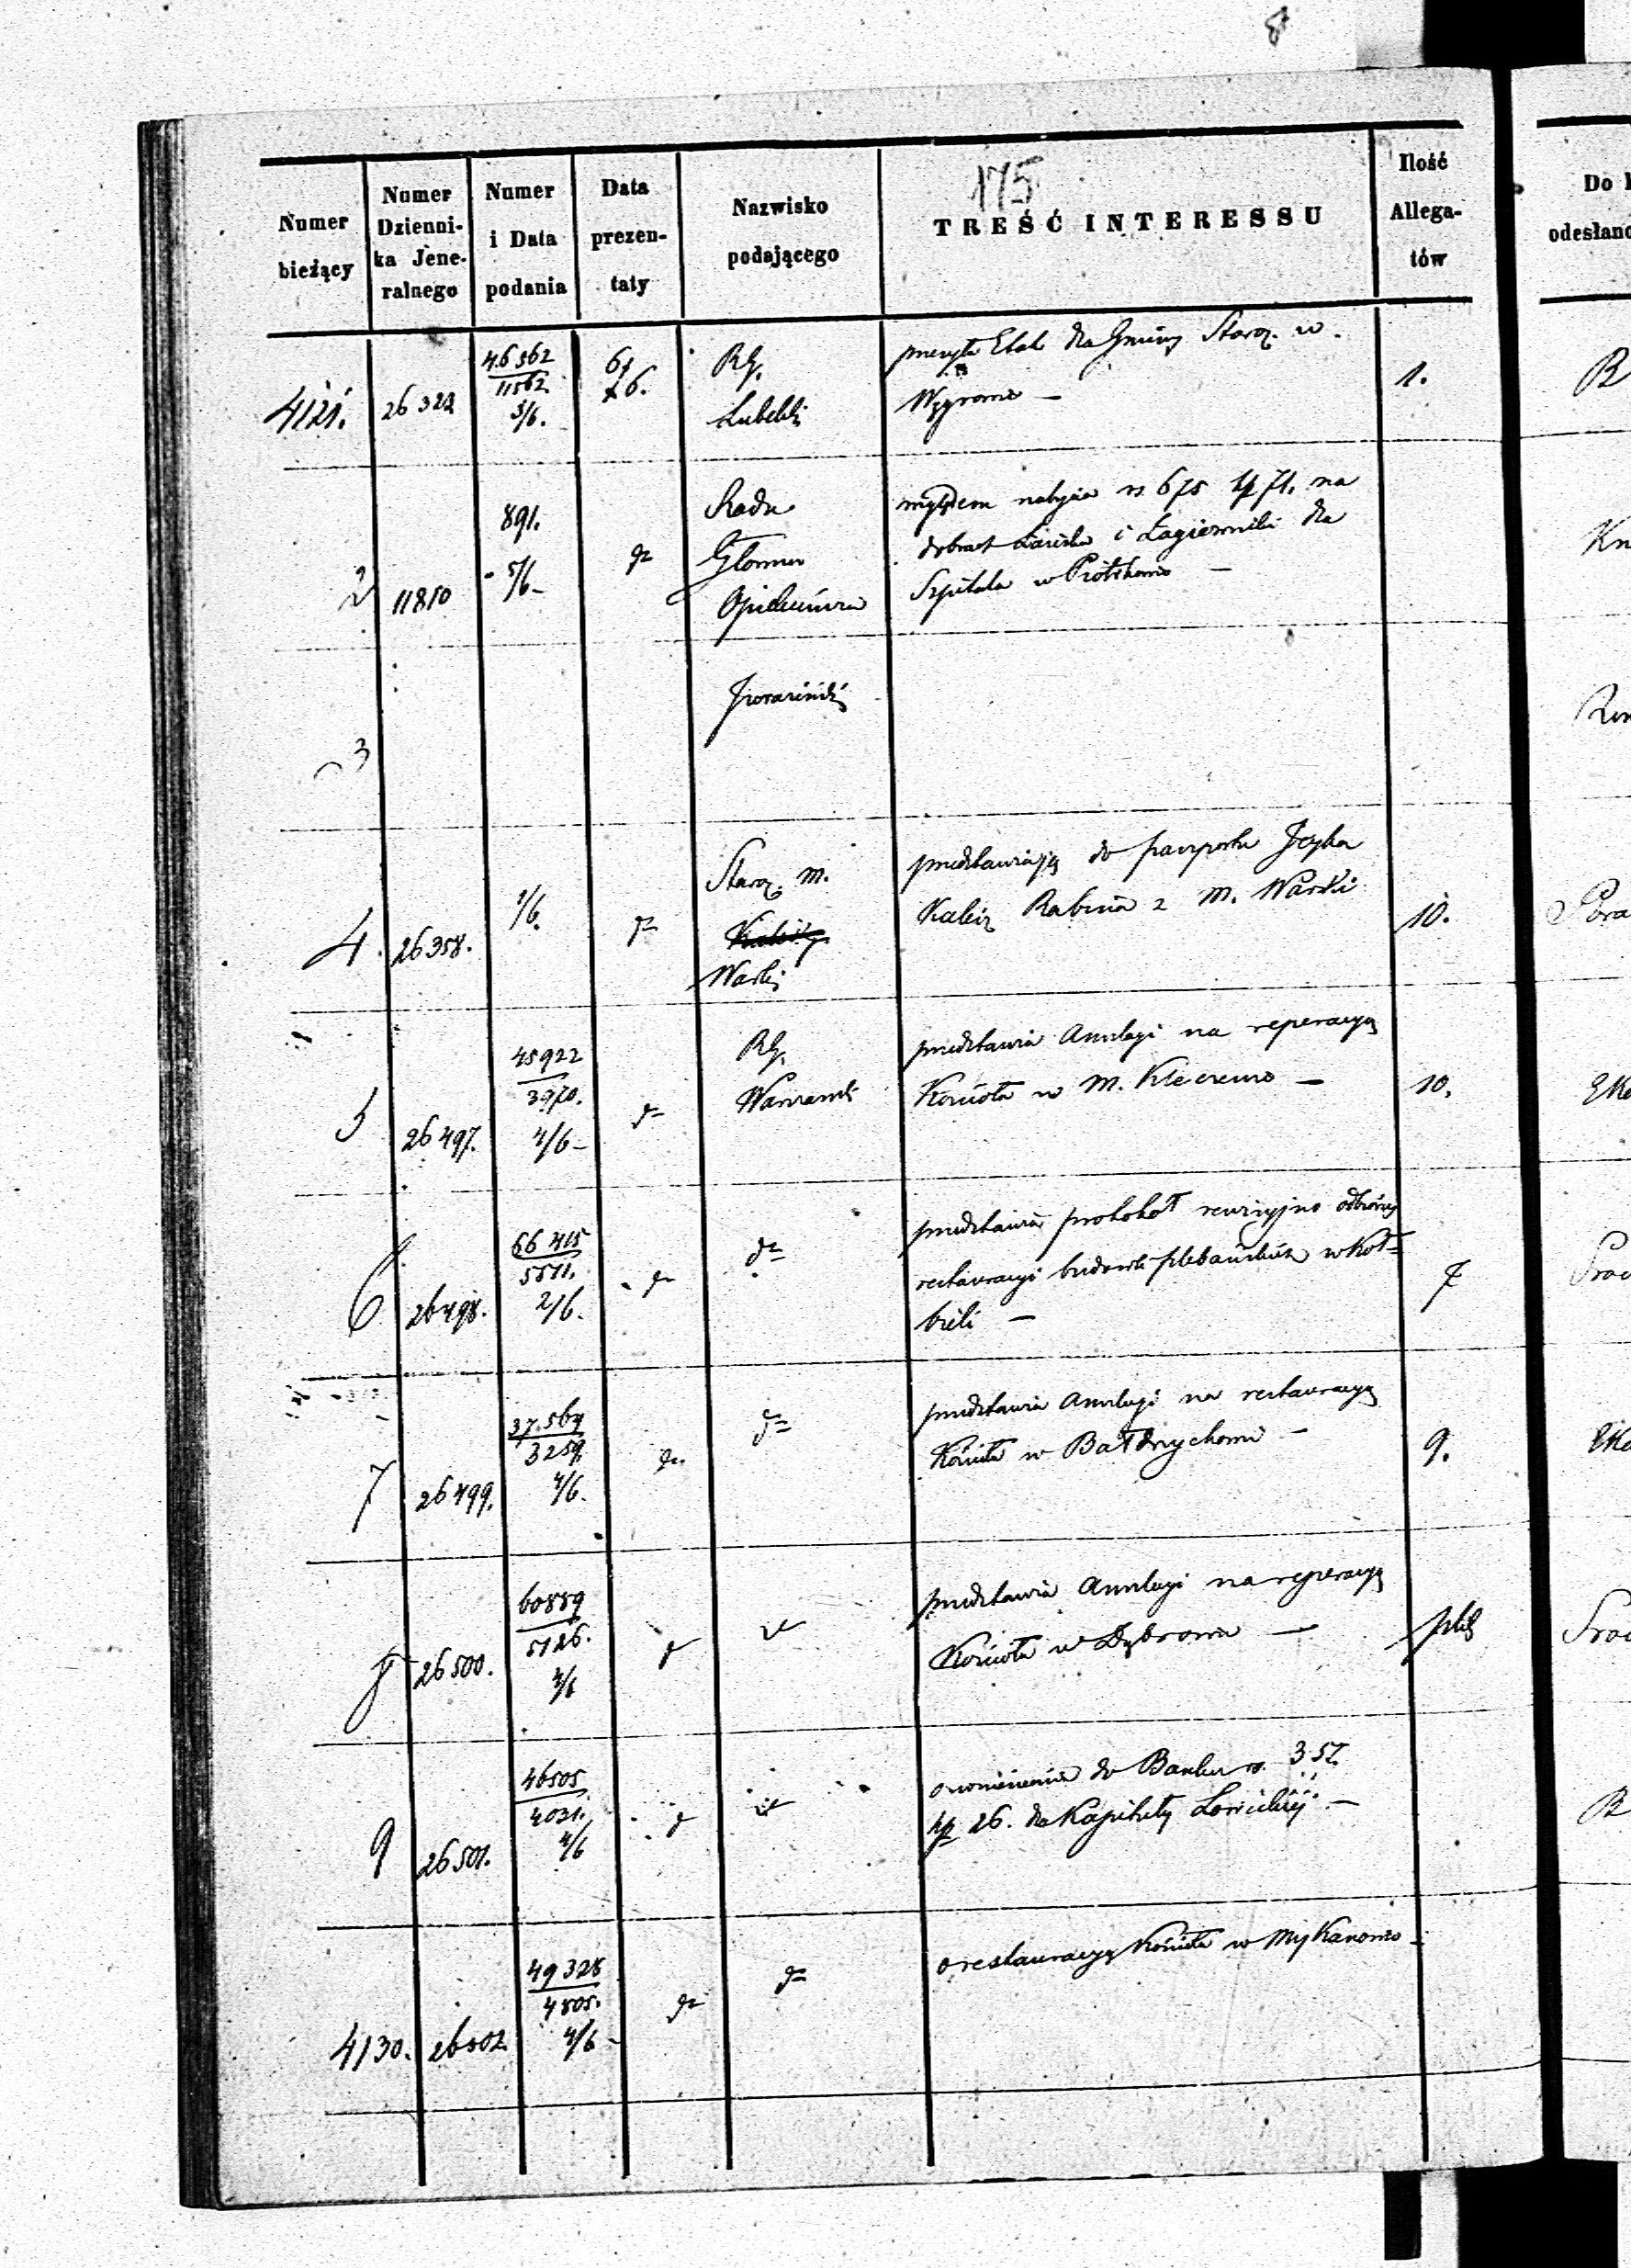 175
Numer bieżący
Numer Dziennika Jeneralnego
Numer i Data podania
Data prezentaty
Nazwisko podającego
TREŚĆ INTERESSU
Ilość Allegatów
Do
odesłano
4121. 26322 46562 / 11562 5/6. 6/6. RG. Lubelski
przesyła Etat dla Gminy Staroz. w
Węgrowie — 1.
2 11810 891. 5/6 — do Rada Główna Opiekuńcza
względem nabycia rs 675 kp 71. na
dobrach i Łagiewniki dla
Szpitala w Piotrkowie —
3
4. 26358. 1/6. do Staroz. m. Warki
przedstawiają do paszportu Icyka
Kalisz Rabina z M. Warki 10.
5 26497. 45922 / 3970. 4/6 — do RG. Warszawski
przedstawia Anszlagi na reperacyą
Kościoła w M. Kleczewo — 10.
6 26498. 66415 / 5511. 2/6. do do
przedstawia protokół rewizyjno odbiorczy
restauracyi budowli plebańskich w Koł=
bieli — 7
7 26499. 37.564 / 3259. 4/6. do do
przedstawia Anszlagi na restauracyą
Kościoła w Bałdrychowie — 9.
8 26500. 60889 / 5126. 4/6 do do
przedstawia Anszlagi na reperacyą
Kościoła w Dąbrowie — plik
9 26501. 46505 / 4031. 4/6 do do
o wniesienie do Banku rs. 357
kp 26. dla Kapituły Łowickiej. —
4130. 26502 49328 / 4805. 4/6 — do do
o restauracyą Kościoła w Mykanowo —